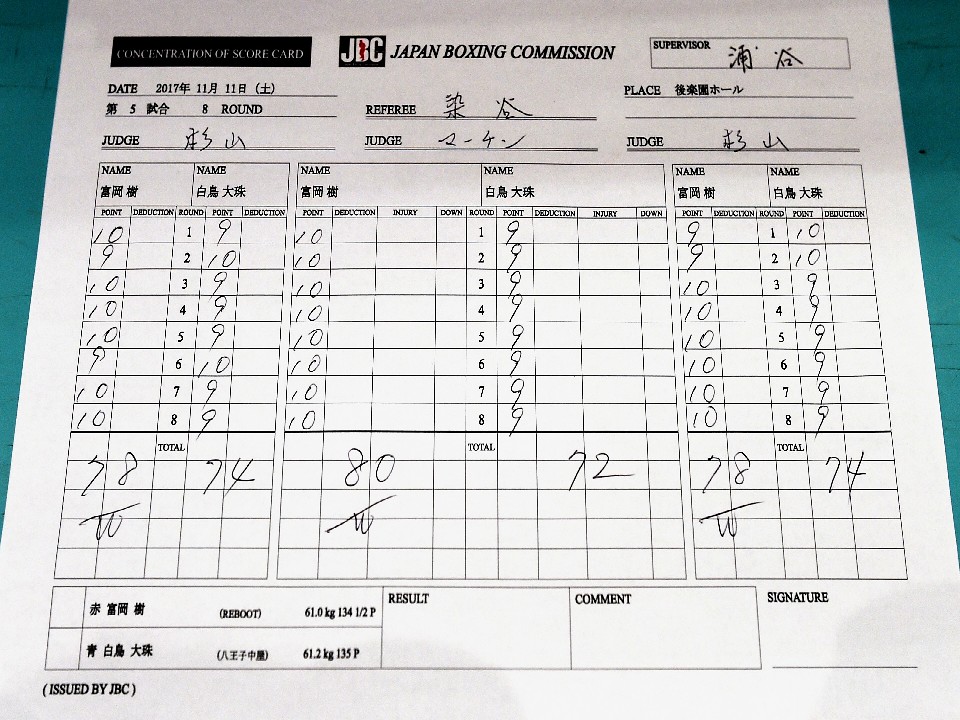 CONCENTRATION OF SCORE CARD JBC JAPAN BOXING COMMISSION SUPERVISOR 浦谷
DATE 2017年 11月 11日 (土) PLACE 後楽園ホール
第 5 試合 8 ROUND REFEREE 染谷
JUDGE 杉山 JUDGE マーチン JUDGE 杉山
NAME NAME NAME NAME NAME NAME
富岡 樹 白鳥 大珠 富岡 樹 白鳥 大珠 富岡 樹 白鳥 大珠
POINT DEDUCTION ROUND POINT DEDUCTION POINT DEDUCTION INJURY DOWN ROUND POINT DEDUCTION INJURY DOWN POINT DEDUCTION ROUND POINT DEDUCTION
10 1 9 10 1 9 9 1 10
9 2 10 10 2 9 9 2 10
10 3 9 10 3 9 10 3 9
10 4 9 10 4 9 10 4 9
10 5 9 10 5 9 10 5 9
9 6 10 10 6 9 10 6 9
10 7 9 10 7 9 10 7 9
10 8 9 10 8 9 10 8 9
TOTAL TOTAL TOTAL
78 74 80 72 78 74
W W W
赤 富岡 樹 (REBOOT) 61.0 kg 134 1/2 P RESULT COMMENT SIGNATURE
青 白鳥 大珠 (八王子中屋) 61.2 kg 135 P
( ISSUED BY JBC )